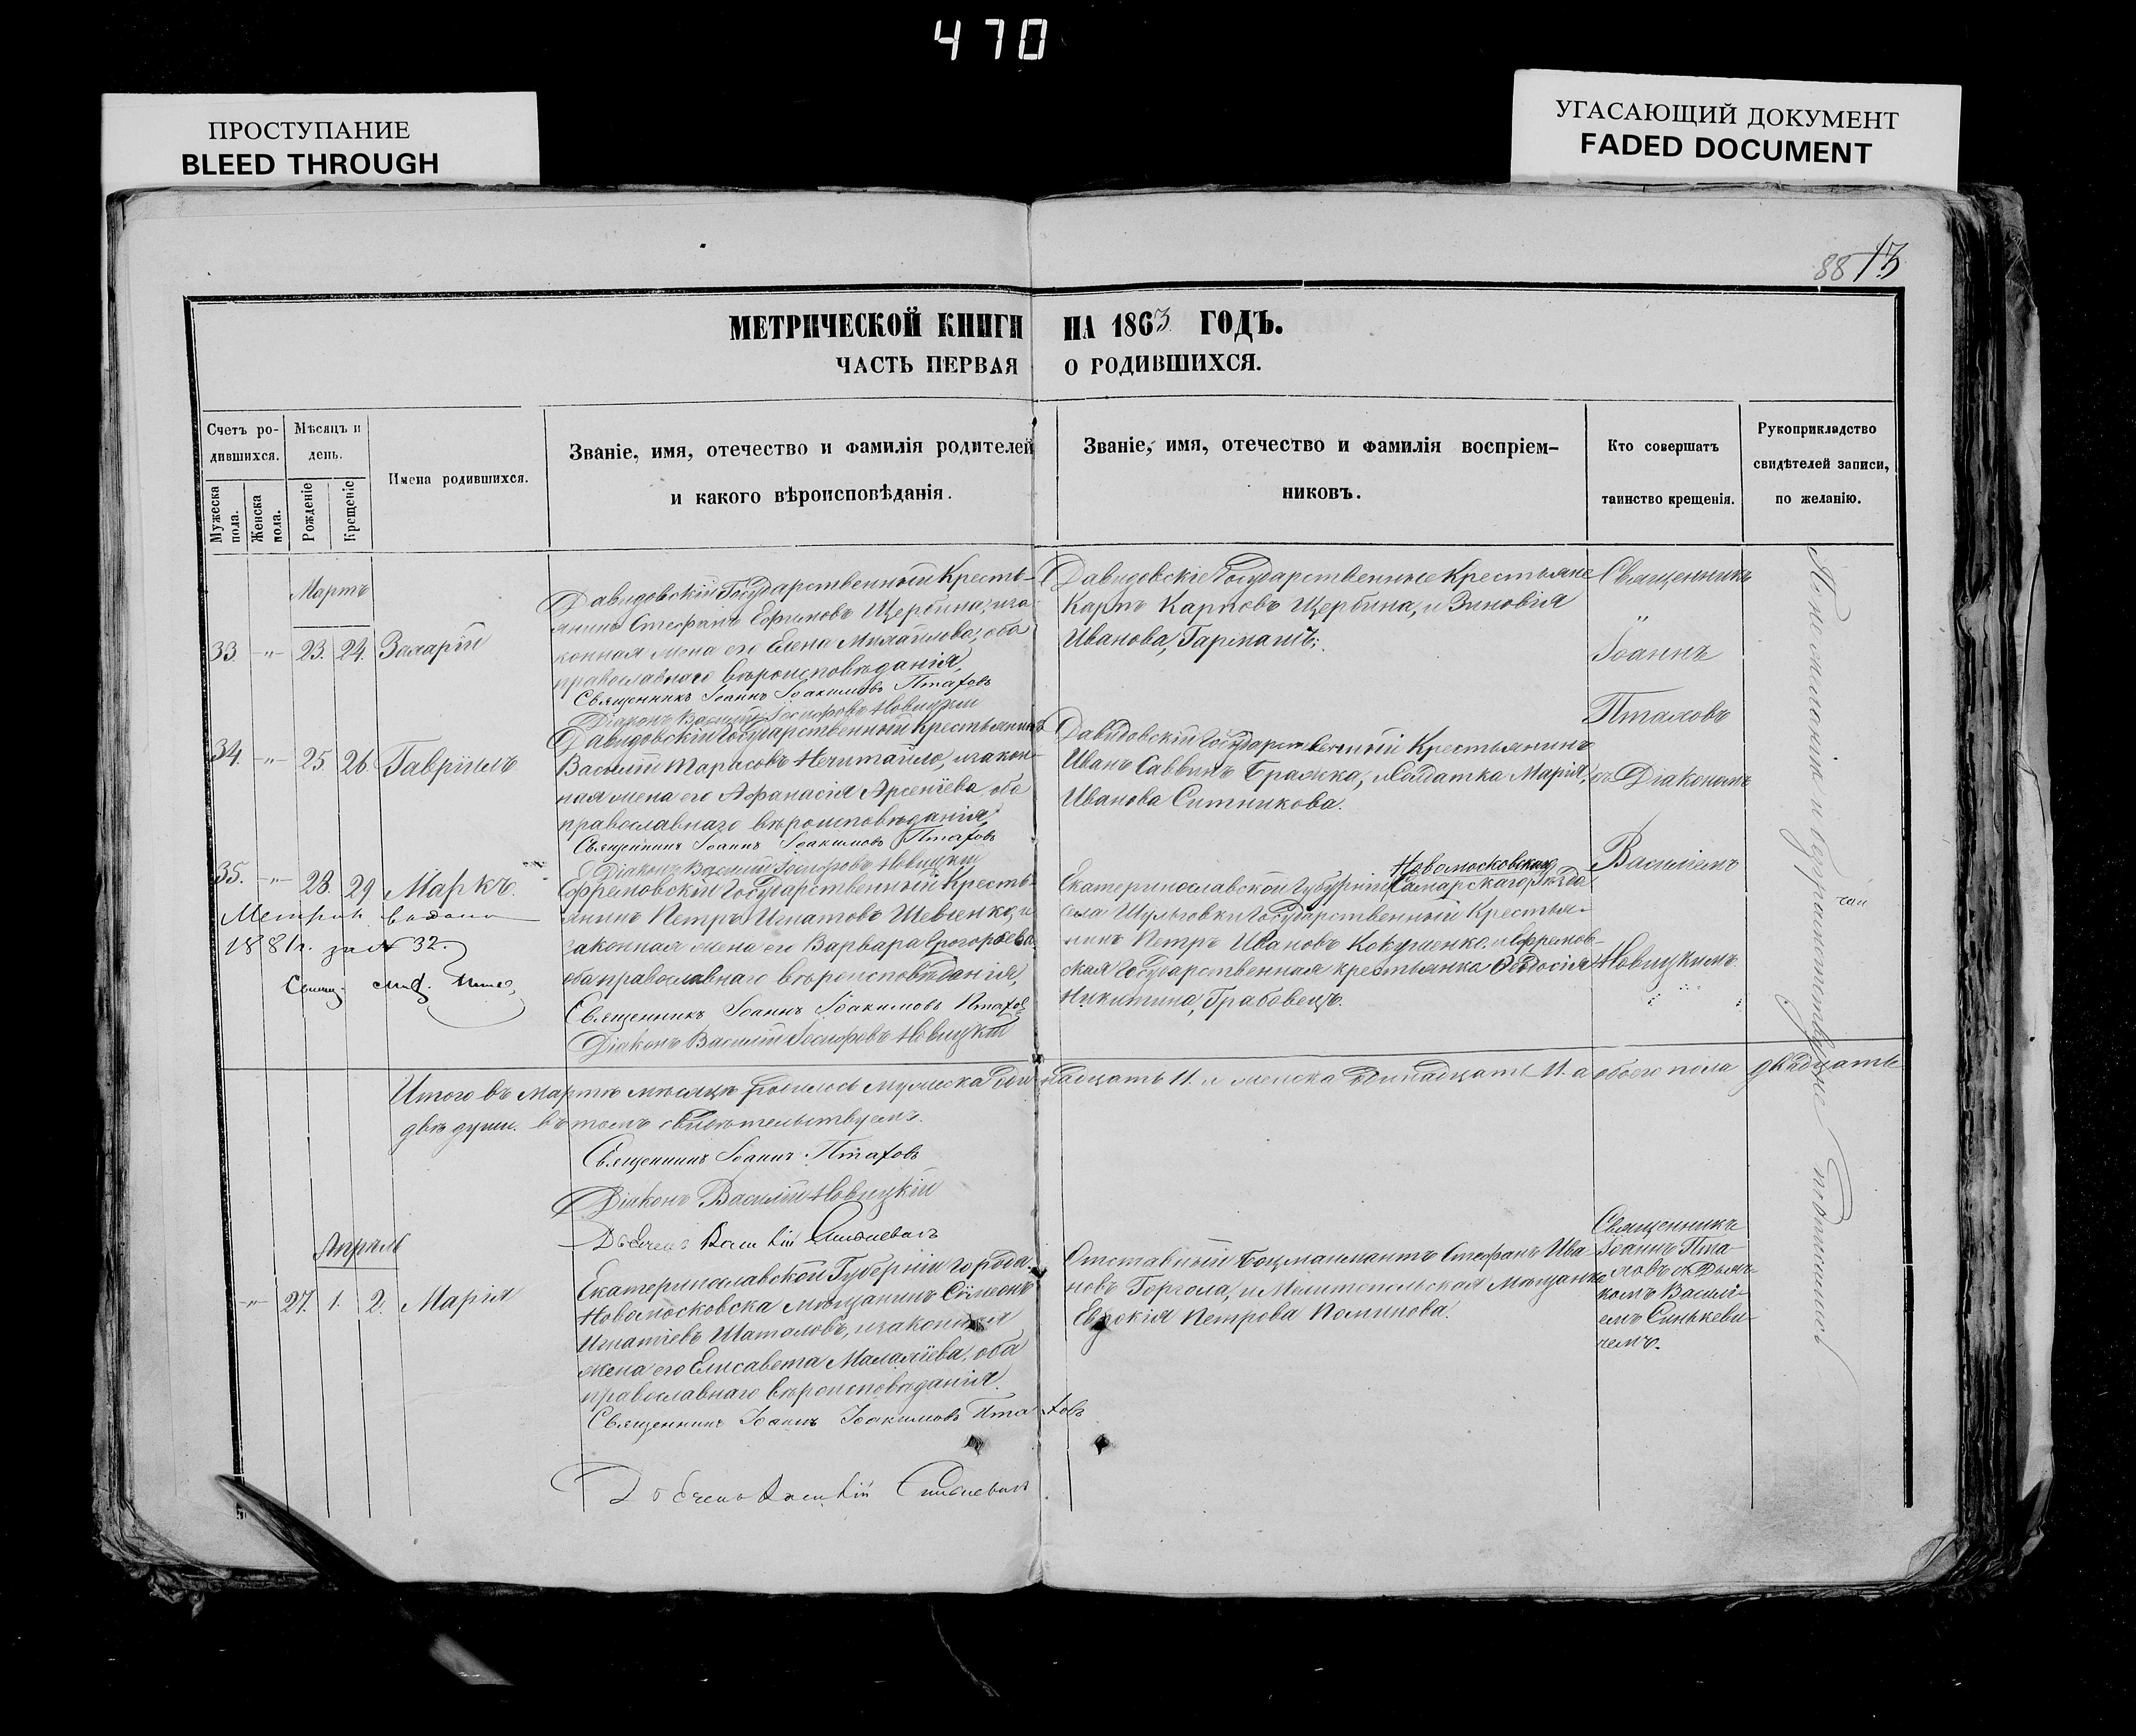 470
ПРОСТУПАНИЕ
BLEED THROUGH
УГАСАЮЩИЙ ДОКУМЕНТ
FADED DOCUMENT
88 13
МЕТРИЧЕСКОЙ КНИГИ НА 1863 ГОДЪ.
ЧАСТЬ ПЕРВАЯ О РОДИВШИХСЯ.
Счетъ ро-
дившихся.
Мужеска
пола.
Женска
пола.
Мѣсяцъ и
день.
Рожденіе
Крещеніе
Имена родившихся.
Званіе, имя, отечество и фамилія родителей
и какого вѣроисповѣданія.
Званіе, имя, отечество и фамилія воспріем-
никовъ.
Кто совершатъ
таинство крещенія.
Рукоприкладство
свидѣтелей записи,
по желанію.
Мартъ
33. -"- 23. 24. Захарій
Давидовскій Государственный Кресть-
янинъ Стефанъ Ефимовъ Щербина, и за-
конная жена его Елена Михайлова, оба
православнаго вѣроисповѣданія,
Священникъ Іоаннъ Іоакимовъ Птаховъ
Діаконъ Василій Іосифовъ Новицкій
Давидовскіе Государственные Крестьяне
Карпъ Карповъ Щербина, и Зиновія
Иванова, Гармашъ;
Священникъ
"
Іоаннъ
Птаховъ
34. -"- 25. 26. Гавріилъ
Давидовскій Государственный Крестьянинъ
Василій Тарасовъ Нечитайло, и закон-
ная жена его Афанасія Арсеніева, оба
православнаго вѣроисповѣданія,
Священникъ Іоаннъ Іоакимовъ Птаховъ
Діаконъ Василій Іосифовъ Новицкій
Давидовскій Государственный Крестьянинъ
Иванъ Саввинъ Бражка, Солдатка Марія
Иванова Ситникова.
съ Діакономъ
Василіемъ
35. -"- 28. 29. Маркъ.
Метрик. выдана
1881 г. за № 32.
Ефремовскій Государственный Кресть-
янинъ Петръ Игнатовъ Шевченко, и
законная жена его Варвара Григорьева
оба православнаго вѣроисповѣданія,
Священникъ Іоаннъ Іоакимовъ Птаховъ
Діаконъ Василій Іосифовъ Новицкій
Новомосковскаго
Екатеринославской Губерніи, Самарскаго уѣзда
села Шульговки Государственный Крестья-
нинъ Петръ Ивановъ Кокушенко, и Ефремов-
ская Государственная крестьянка Ѳеодосія
Никитина, Грабовецъ.
Новицкимъ.
Итого въ Мартѣ мѣсяцѣ родилось мужеска одинадцать 11. и женска одинадцать 11. а обоего пола двадцать
двѣ души. въ томъ свидѣтельствуемъ.
Священникъ Іоаннъ Птаховъ
Діаконъ Василій Новицкій
Дьячекъ Василій Синкевичъ
Апрѣль
-"- 27. 1. 2. Марія
Екатеринославской Губерніи города
Новомосковска мѣщанинъ Симеонъ
Игнатіевъ Шаталовъ, и законная
жена его Елисавета Малахіева, оба
православнаго вѣроисповѣданія.
Священникъ Іоаннъ Іоакимовъ Птаховъ
Дьячекъ Василій Синкевичъ
Отставный Боцманматъ Стефанъ Ива-
новъ Горгола, и Мелитопольская Мѣщанка
Евдокія Петрова Поминова.
Священникъ
Іоаннъ Пта-
ховъ съ Дьяч-
комъ Василі-
емъ Синькеви-
чемъ.
По желанію и безграмотству не подписались